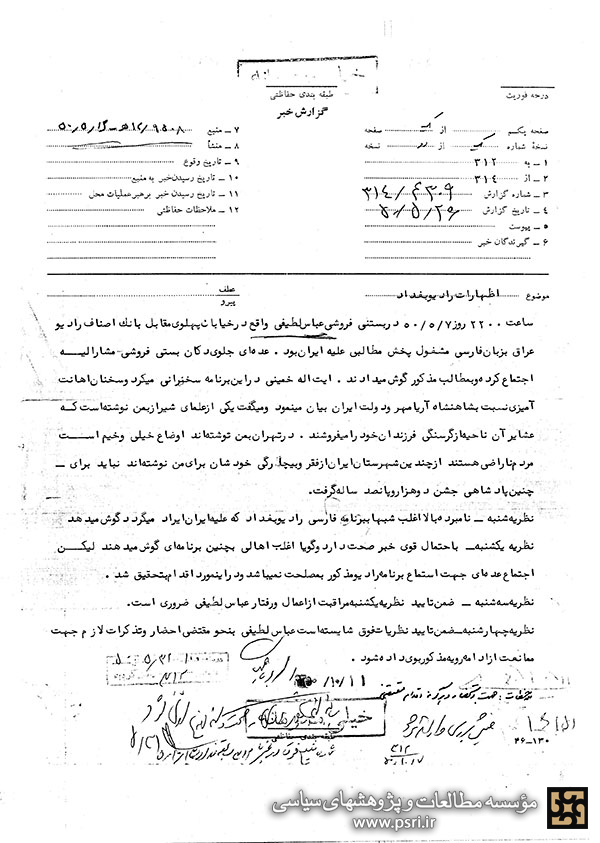 خیلی محرمانه
درجه فوریت
طبقه بندی حفاظتی
گزارش خبر
صفحه یکم از یک صفحه
نسخه شماره یک از دو نسخه
۱ ـ به ۳۱۲
۲ ـ از ۳۱۴
۳ ـ شماره گزارش ۳۱۴/۴۳۰۹
۴ ـ تاریخ گزارش ۵۰/۵/۲۶
۵ ـ پیوست
۶ ـ گیرندگان خبر
۷ ـ منبع
۸ ـ منشأ
۹ ـ تاریخ وقوع
۱۰ ـ تاریخ رسیدن خبر به منبع
۱۱ ـ تاریخ رسیدن خبر برهبر عملیات محل
۱۲ ـ ملاحظات حفاظتی
موضوع اظهارات رادیو بغداد
عطف
پیرو
ساعت ۲۲۰۰ روز ۵۰/۵/۷ دربستنی فروشی عباس لطیفی واقع درخیابان پهلوی مقابل بانک اصناف رادیو
عراق بزبان فارسی مشغول پخش مطالبی علیه ایران بود . عده‌ای جلوی دکان بستی فروشی مشارالیه
اجتماع کرده و بمطالب مذکور گوش میدادند . ایت اله خمینی دراین برنامه سخنرانی میکرد و سخنان اهانت
آمیزی نسبت بشاهنشاه آریامهر و دولت ایران بیان مینمود و میگفت یکی ازعلمای شیراز بمن نوشته است که
عشایر آن ناحیه از گرسنگی فرزندان خود را میفروشند . درتهران بمن نوشته‌اند اوضاع خیلی وخیم است
مردم ناراضی هستند ازچندین شهرستان ایران از فقر و بیچارگی خودشان برای من نوشته‌اند نباید برای ـ
چنین پادشاهی جشن دوهزار و پانصد ساله گرفت.
نظریه شنبه ـ نامبرده بالا اغلب شبها ببرنامه فارسی رادیو بغداد که علیه ایران ایراد میگردد گوش میدهد
نظریه یکشنبه ـ باحتمال قوی خبر صحت دارد و گویا اغلب اهالی بچنین برنامه‌ای گوش میدهند لیکن
اجتماع عده‌ای جهت استماع برنامه رادیو مذکور بمصلحت نمیباشد و دراینمورد اقدام بتحقیق شد .
نظریه سه‌شنبه ـ ضمن تایید نظریه یکشنبه مراقبت از اعمال و رفتار عباس لطیفی ضروری است.
نظریه چهارشنبه ـ ضمن تایید نظریات فوق شایسته است عباس لطیفی بنحو مقتضی احضار و تذکرات لازم جهت
ممانعت از ادامه رویه مذکور بوی داده شود .
خیلی محرمانه
طبقه بندی حفاظتی
۴۶-۱۳۰
مؤسسه مطالعات و پژوهشهای سیاسی
www.psri.ir